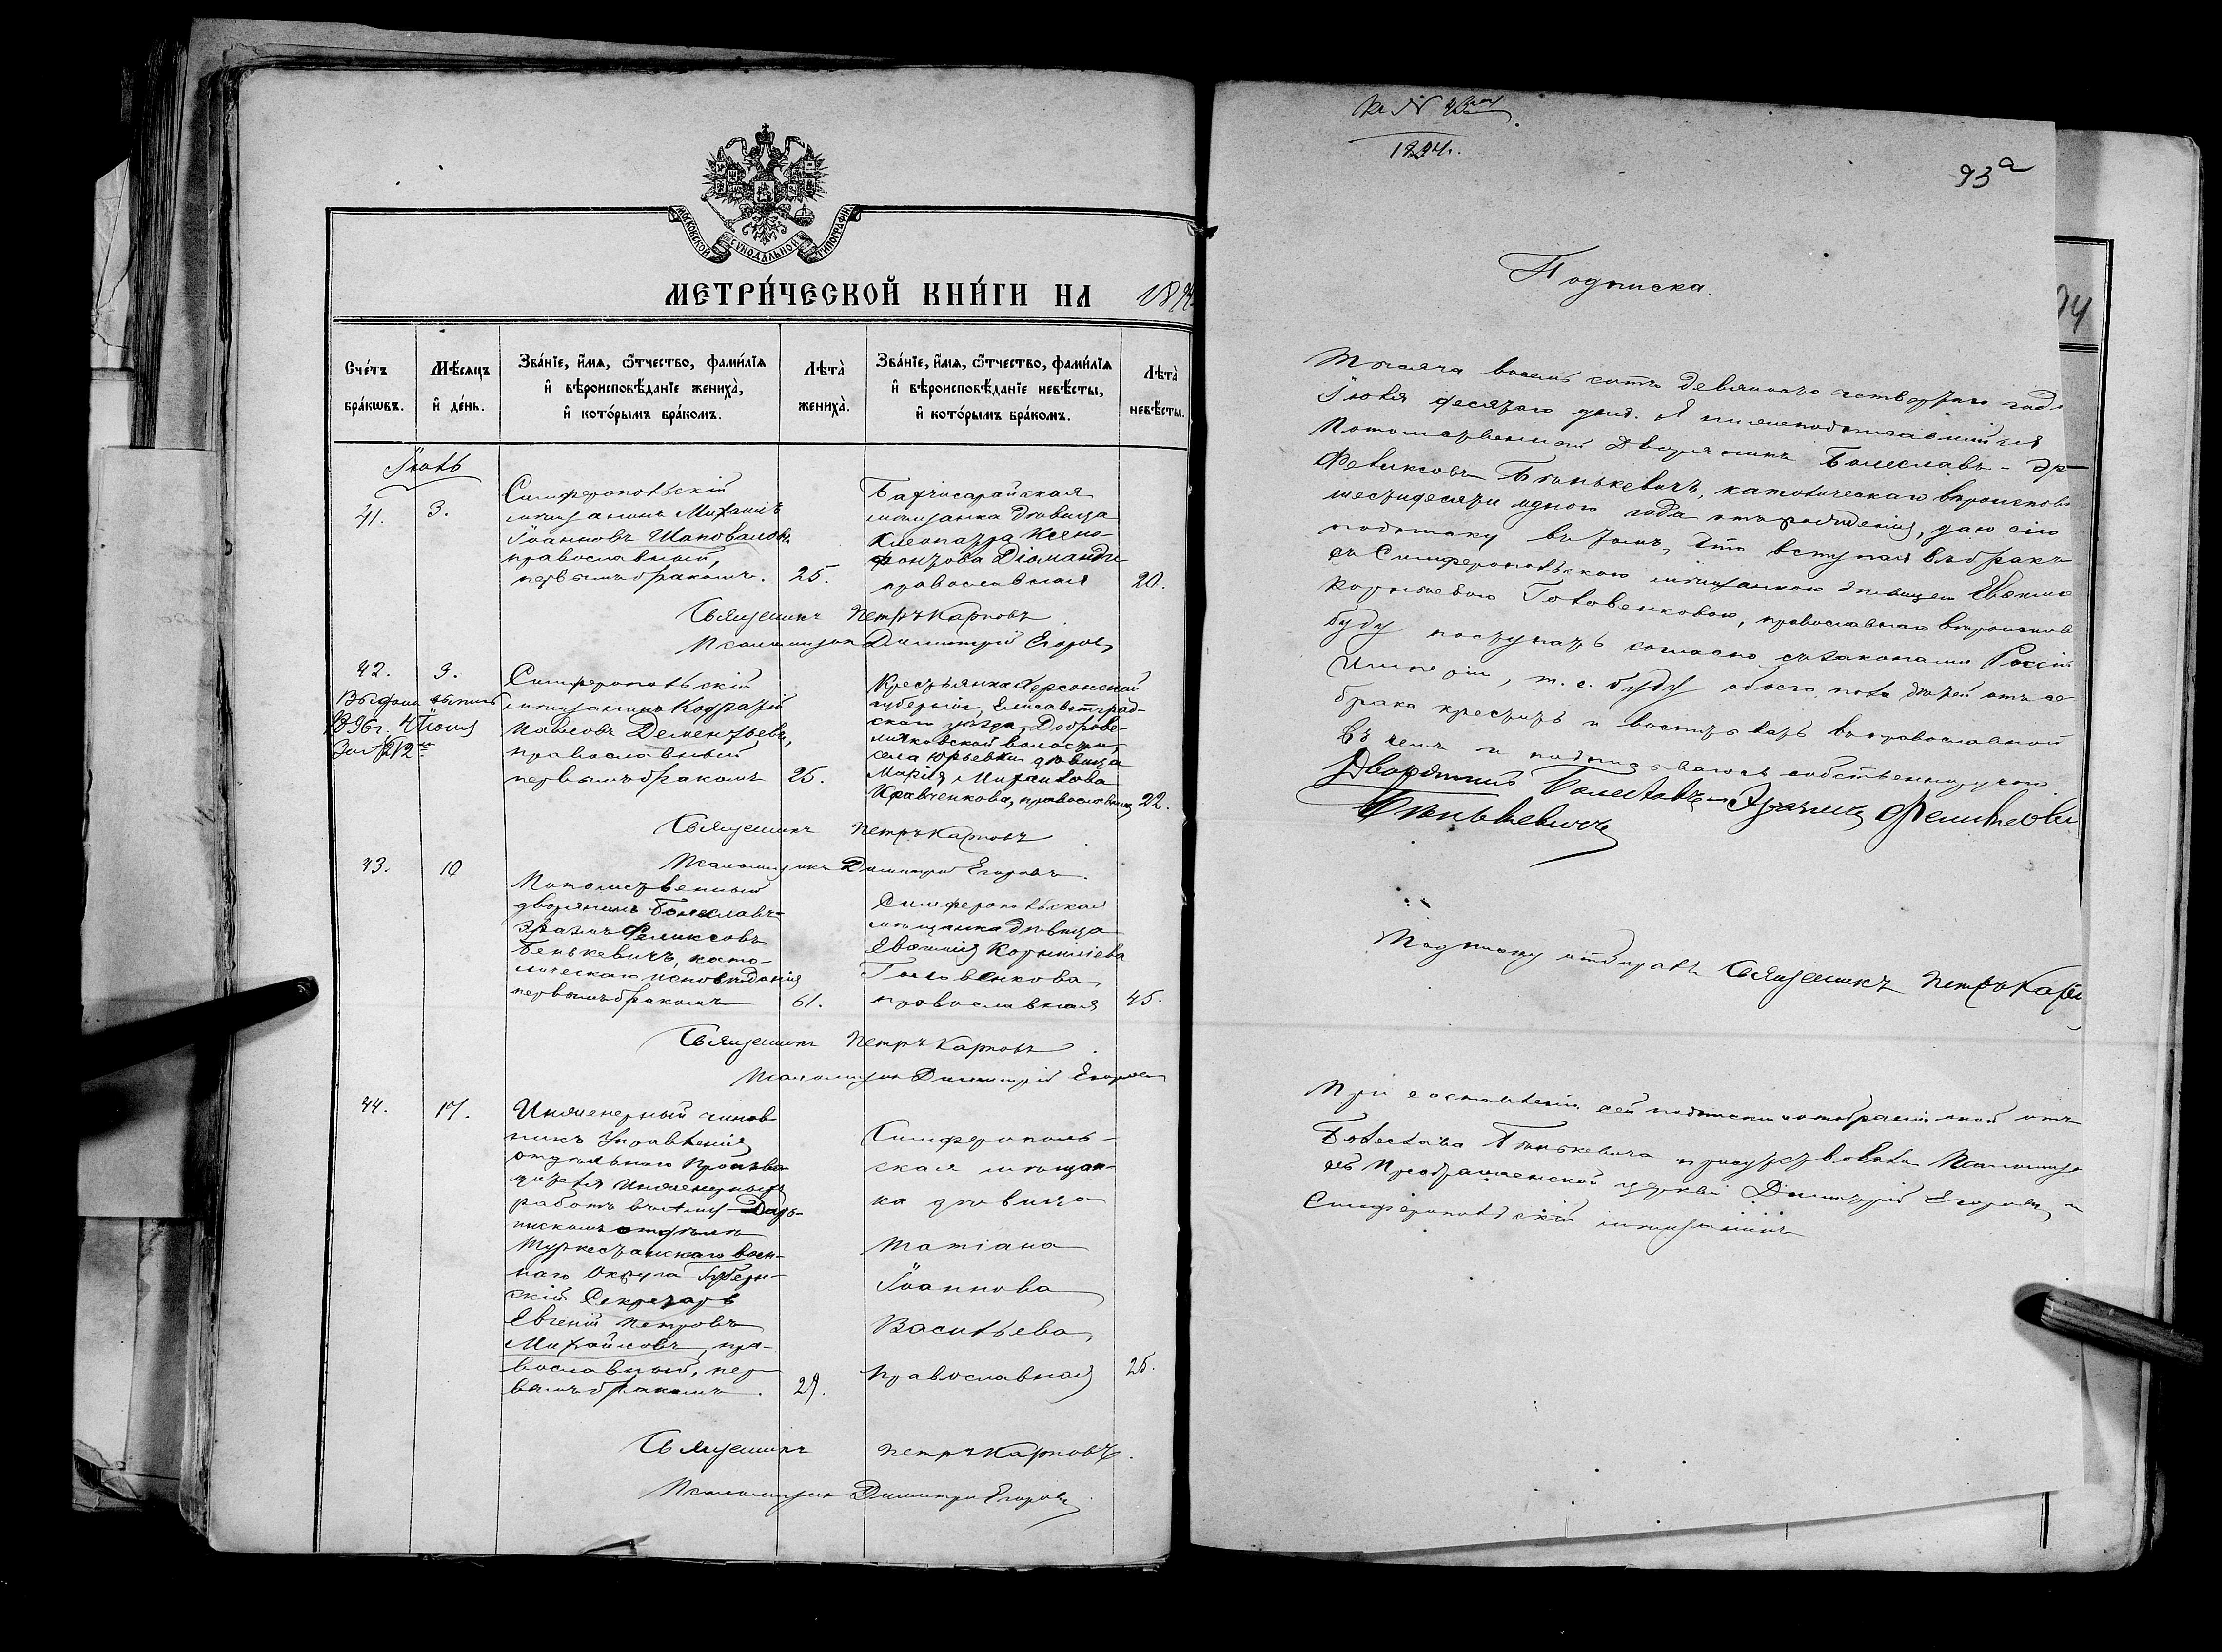 МОСКОВСКОЙ СѴНОДАЛЬНОЙ ТИПОГРАФІИ
МЕТРИ́ЧЕСКОЙ КНИ́ГИ НА 1894
Сче́тъ бра́кѡвъ.
Мѣ́сяцъ и҆ де́нь.
Зва́нїе, и҆́мя, ѻ҆́тчество, фами́лїя
и҆ вѣроисповѣ́данїе жениха̀,
и҆ кото́рымъ бра́комъ.
Лѣта̀ жениха̀.
Зва́нїе, и҆́мя, ѻ҆́тчество, фами́лїя
и҆ вѣроисповѣ́данїе невѣ́сты,
и҆ кото́рымъ бра́комъ.
Лѣта̀ невѣ́сты.
Іюль
41.
3.
Симферопольскій
мѣщанинъ Михаилъ
Іоанновъ Шаповаловъ
православный,
первымъ бракомъ.
25.
Бахчисарайская
мѣщанка дѣвица
Клеопатра Ксено-
фонтова Діаманди
православная
20.
Священникъ Петръ Карповъ
Псаломщикъ Димитрій Егоровъ
42.
3.
Симферопольскій
мѣщанинъ
Павловъ Дементьевъ,
православный
первымъ бракомъ
25.
Крестьянка Херсонской
губерніи, Елисаветград-
скаго уѣзда, Доброве-
личковской волости,
села Юрьевки дѣвица
Марія Михаилова
Кравченкова, православная
22.
Священникъ Петръ Карповъ
Псаломщикъ Димитрій Егоровъ.
43.
10
Потомственный
дворянинъ Болеславъ-
Эразмъ Феликсовъ
Бенькевичъ, като-
лическаго исповѣданія
первымъ бракомъ
61.
Симферопольская
мѣщанка дѣвица
Евѳимія Корниліева
Головенкова,
православная
45.
Священникъ Петръ Карповъ
Псаломщикъ Димитрій Егоровъ
44.
17.
Инженерный чинов-
никъ Управленія
отдѣльнаго Произво-
дителя Инженерныхъ
работъ въ Аму-Дарь-
инскомъ отдѣлѣ
Туркестанскаго воен-
наго Округа Губерн-
скій Секретарь
Евгеній Петровъ
Михайловъ, пра-
вославный, пер-
вымъ бракомъ.
29.
Симферополь-
ская мѣщан-
ка дѣвица
Татіана
Іоаннова
Васильева,
православная
25.
Священникъ Петръ Карповъ.
Псаломщикъ Димитрій Егоровъ
Къ №
1894 г.
93а
94
Подписка.
Тысяча восемь сотъ девяносто четвертаго года
Іюля десятаго дня. Я нижеподписавшійся
Потомственный Дворянинъ Болеславъ-Эр
Феликсовъ Бенькевичъ, католическаго вѣроисповѣ
шестидесяти одного года отъ рожденія, даю сію
подписку въ томъ, что вступая въ бракъ
съ Симферопольскою мѣщанкою дѣвицею Евѳиміе
Корниліевою Головенковою, православнаго вѣроисповѣ
буду поступать согласно съ законами Россій
Имперіи, т. е. буду обоего пола дѣтей отъ се
брака крестить и воспитывать въ православной
въ чемъ и подписываюсь собственноручно.
Дворянинъ Болеславъ-Эразмъ Феликсовъ
Бенькевичъ
Подписку отбиралъ Священникъ Петръ Карпо
При составленіи сей подписки и отобраніи оной отъ
Болеслава Бенькевича присутствовали Псаломщи
Преображенской церкви Димитрій Егоровъ и
Симферопольскій мѣщанинъ